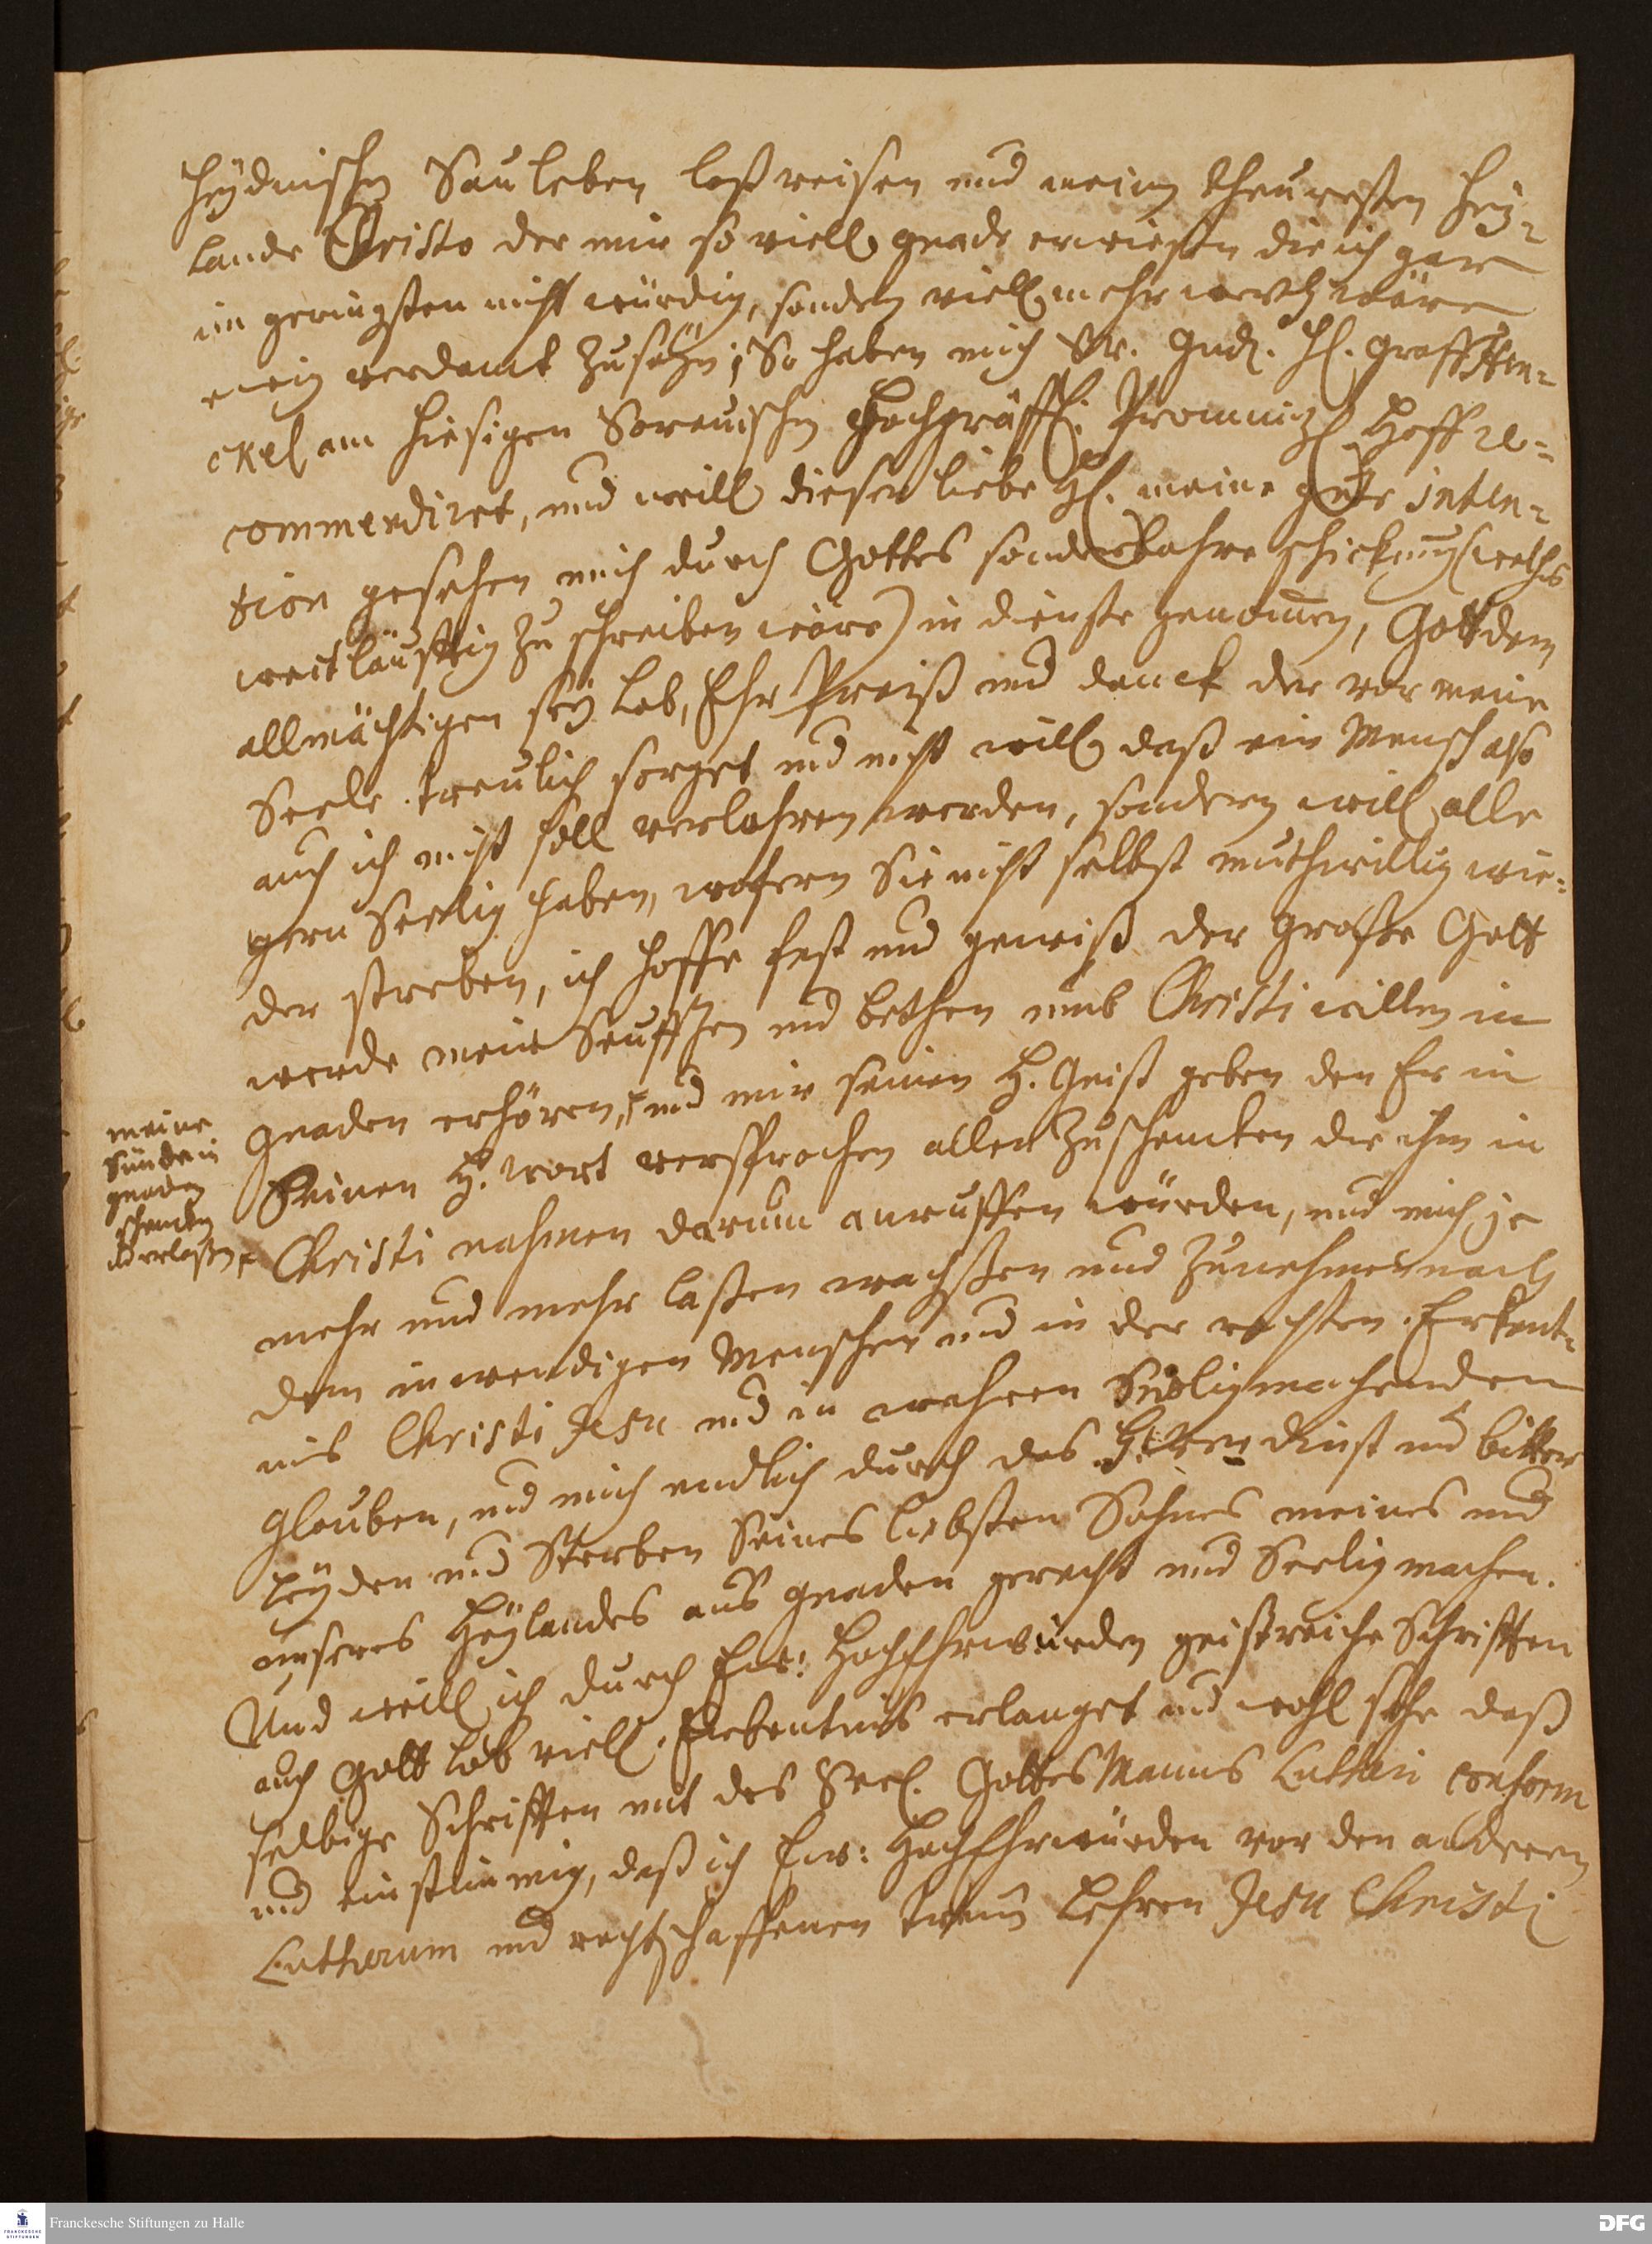 heydnischen Sauleben loßreisen und meinen theuresten Hey-
lande Christo der mir so viell gnade erwiesen die ich gar
im geringsten nicht würdig, sondern viell mehr werth wäre
ewig verdamt zu sehn; So haben mich Sr. Gnd. H. Graff Hen-
ckel am hiesigen Sorauischen Hochgräffl. Promnizl Hoff re-
commendiret, und weill dieser liebe H. meine gute inten-
tion gesehen mich durch Gottes sonderbahre schickung (welches
weitläufftig zu schreiben wäre) in dienste genommen, Gott dem
allmächtigen sey Lob, Ehr Preiß und danck der vor meine
Seele treulich sorget und nicht will daß ein Mensch also
auch ich nicht soll verlohren werden, sondern will alle
gern Seelig haben, wofern Sie nicht selbst muthwillig wie-
der streben, ich hoffe fest und gewiß der große Gott
werde mein Seuffzen und bethen umb Christi willen in
gnaden erhören, + und mir seinen H. Geist geben den Er in
Seinen H. wort versprochen allen zuschencken die ihm in
Christi nahmen darum anruffen würden, und mich je
mehr und mehr laßen wachßen und zunehmen nach
dem inwendigen Menschen und in der rechten Erkent-
nis Christi Jesu und in wahren Seeligmachenden
glauben, und mich endlich durch das H. Verdinst und bitter
Leyden und Sterben Seines liebsten Sohnes meines und
unseres Heylandes aus gnaden gerecht und Seelig machen.
Und weill ich durch Ew: HochEhrwürden geistreiche Schrifften
auch Gott lob viell Erkentnis erlanget und wohl sehe daß
selbige Schrifften mit des Seel. Gottes Manns Lutheri conform
und einstimmig, daß ich Ew: HochEhrwürden vor den anderen
Lutherum und rechtschaffenen treuen Lehrer Jesu Christi
meine
Sünde in
gnaden
schencken
und erlaßen +
Franckesche Stiftungen zu Halle
FRANCKESCHE STIFTUNGEN
DFG